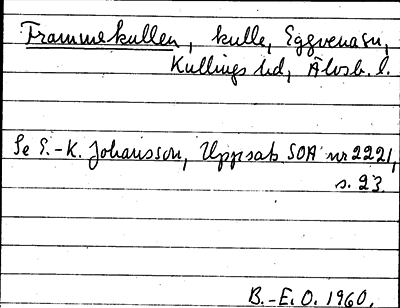 Frammekullen, kulle, Eggvena sn,
Kullings hd, Älvsb. l.
Se E.-K. Johansson, Uppsats SOA nr 2221,
s. 23.
B.-E. O. 1960.